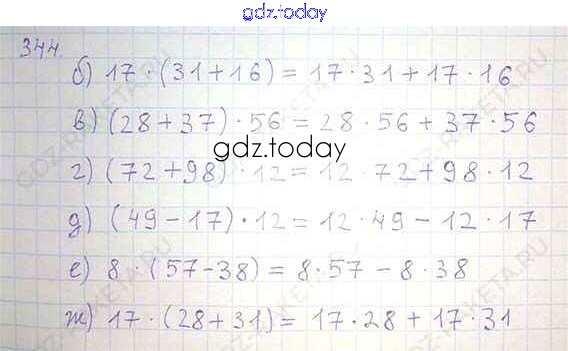 gdz.today
344.
б) 17 · (31 + 16) = 17 · 31 + 17 · 16
в) (28 + 37) · 56 = 28 · 56 + 37 · 56
gdz.today
г) (72 + 98) · 12 = 12 · 72 + 98 · 12
д) (49 – 17) · 12 = 12 · 49 – 12 · 17
е) 8 · (57 – 38) = 8 · 57 – 8 · 38
ж) 17 · (28 + 31) = 17 · 28 + 17 · 31